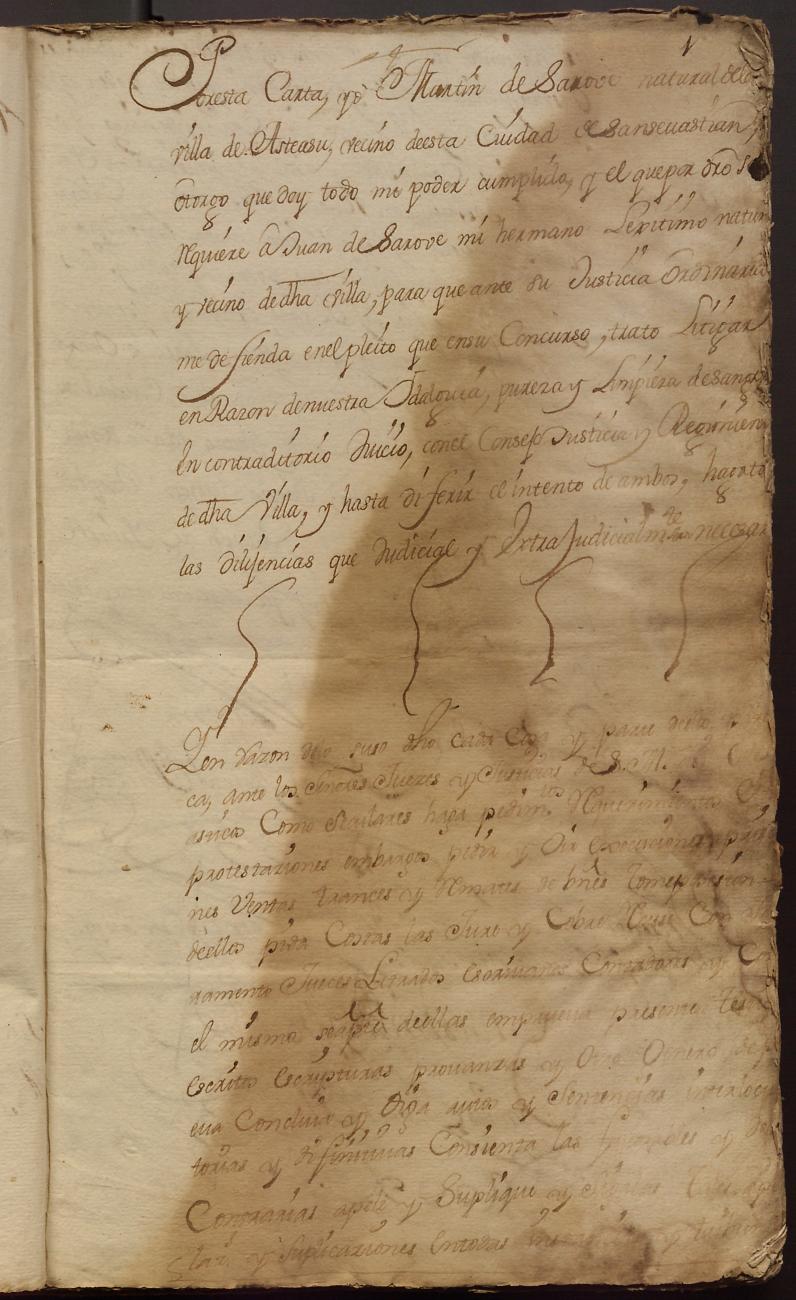 1
Poresta Carta, yo Martin de Sarove natural de la
villa de Asteasu, vecino deesta Ciudad de Sansevastian,
otorgo que doy todo mi poder cumplido, y el quepor dro se
rrequiere a Juan de Sarove mi hermano Lexitimo natur
y vecino de dha villa, para que ante su Justicia Ordinaria
me defienda enel pleito que ensu Concurso, trato Litigar
en Razon denuestra Idalguia, pureza y Limpieza desangre
En contraditorio Juicio, conel Consejo Justicia y Regimien
de dha Villa, y hasta diferir el intento de ambos, haga to
las dilijencias que Judicial y Extra Judicialmte nezesar
Y en razon delo suso dho cada cosa y parte dello
ca, ante los Señores Juezes y Justicias de S. M.
asticos Como Seglares haga pedimtos Requerimientos
protestaziones embargos pedir y execuciones pris
nes Ventas trances y Remates de bienes tome posesion
deellos pida Costas las Jure y Cobre Recuse Con
ramento Jueces Letrados escrivanos Contadores y
el mismo se aparte deellas empruena presente tes
escritos escripturas provanzas y Otro Genero de
eva Concluio y Oiga autos y Sentencias interlocu
torias y difinitivas Consienta las favorables y de
Contrarias apele y Suplique y Siga
laz. y suplicaziones entodas instancias y